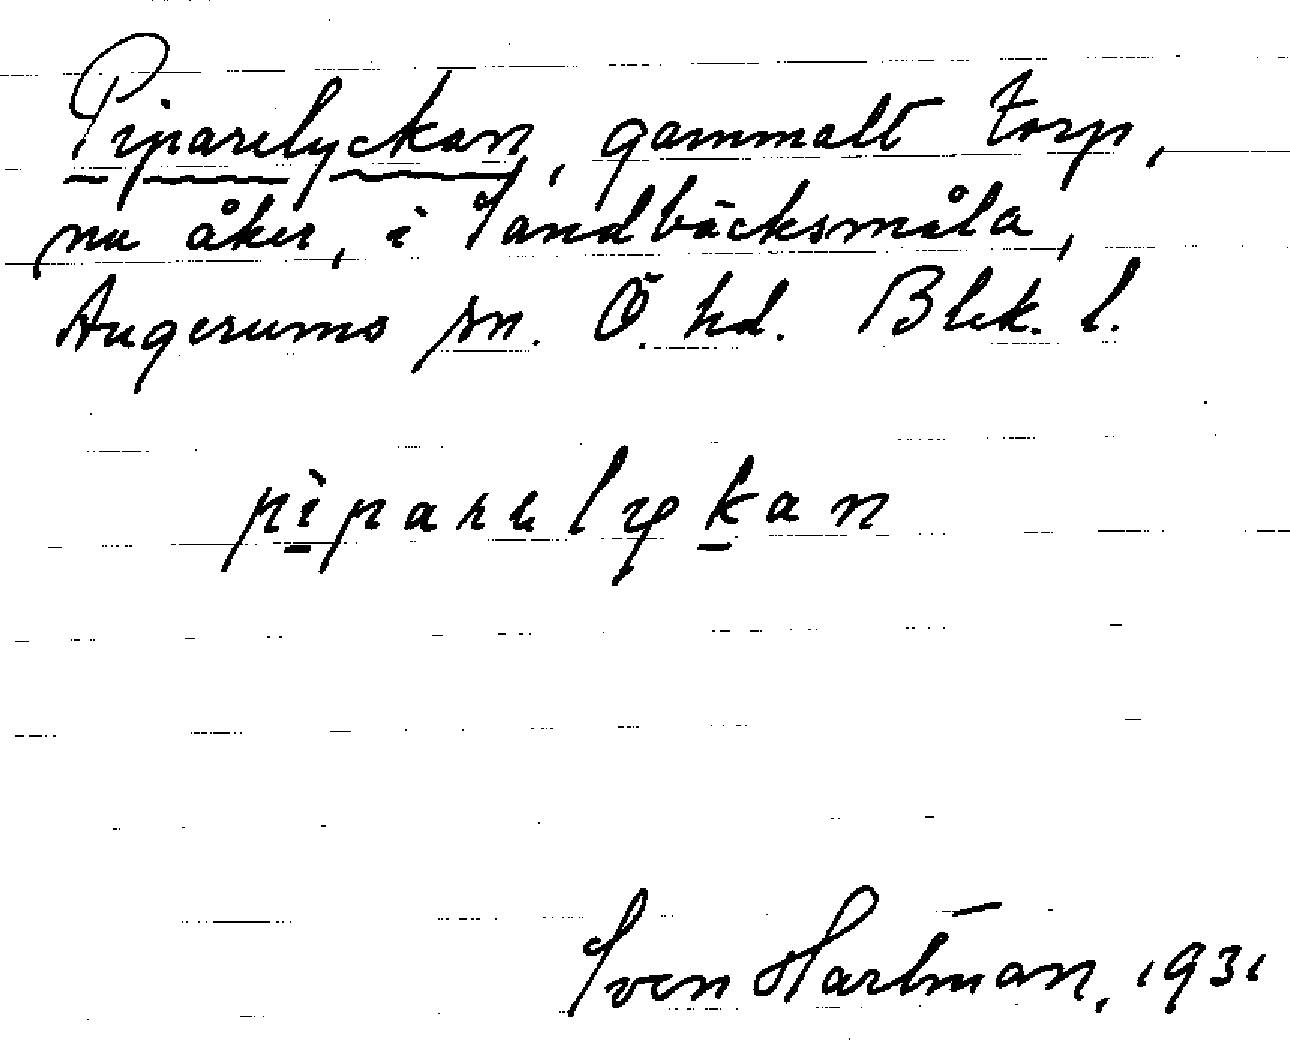 Piparelyckan, gammalt torp,
nu åker, i Sandbäcksmåla,
Augerums sn. Ö. hd. Blek. l.
pìparelykan
Sven Hartman, 1931